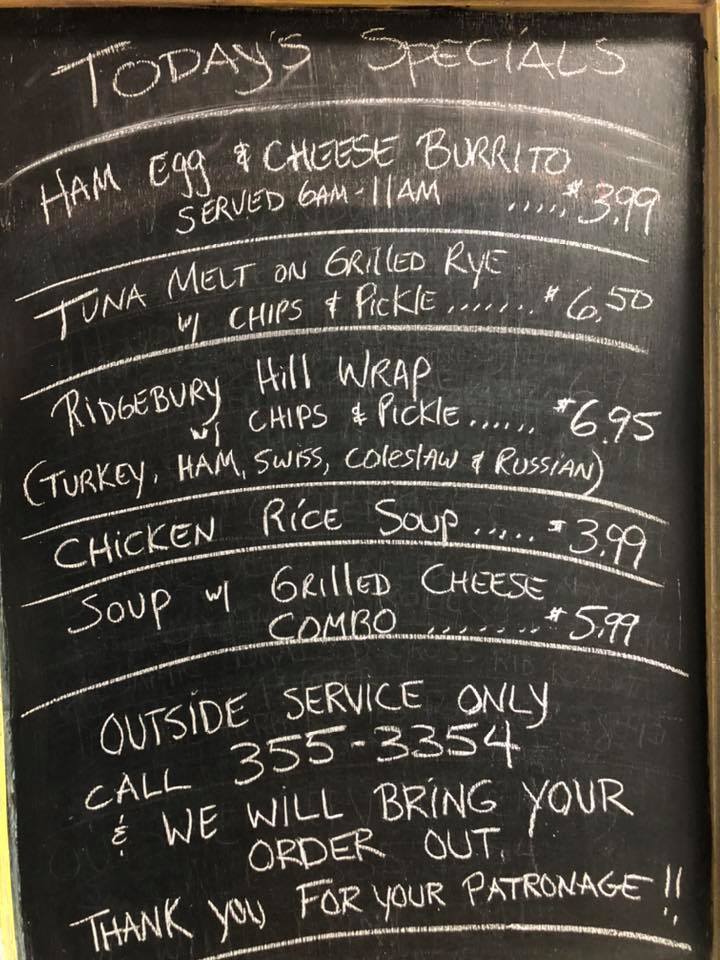 Today's Specials
Ham Egg & Cheese Burrito
Served 6AM-11AM ..... $3.99
Tuna Melt on Grilled Rye
w/ Chips & Pickle ....... $6.50
Ridgebury Hill Wrap
w/ Chips & Pickle ...... $6.95
(Turkey, Ham, Swiss, Coleslaw & Russian)
Chicken Rice Soup ..... $3.99
Soup w/ Grilled Cheese
Combo ........ $5.99
Outside Service Only
Call 355-3354
& We Will Bring Your
Order Out.
Thank You For Your Patronage!!